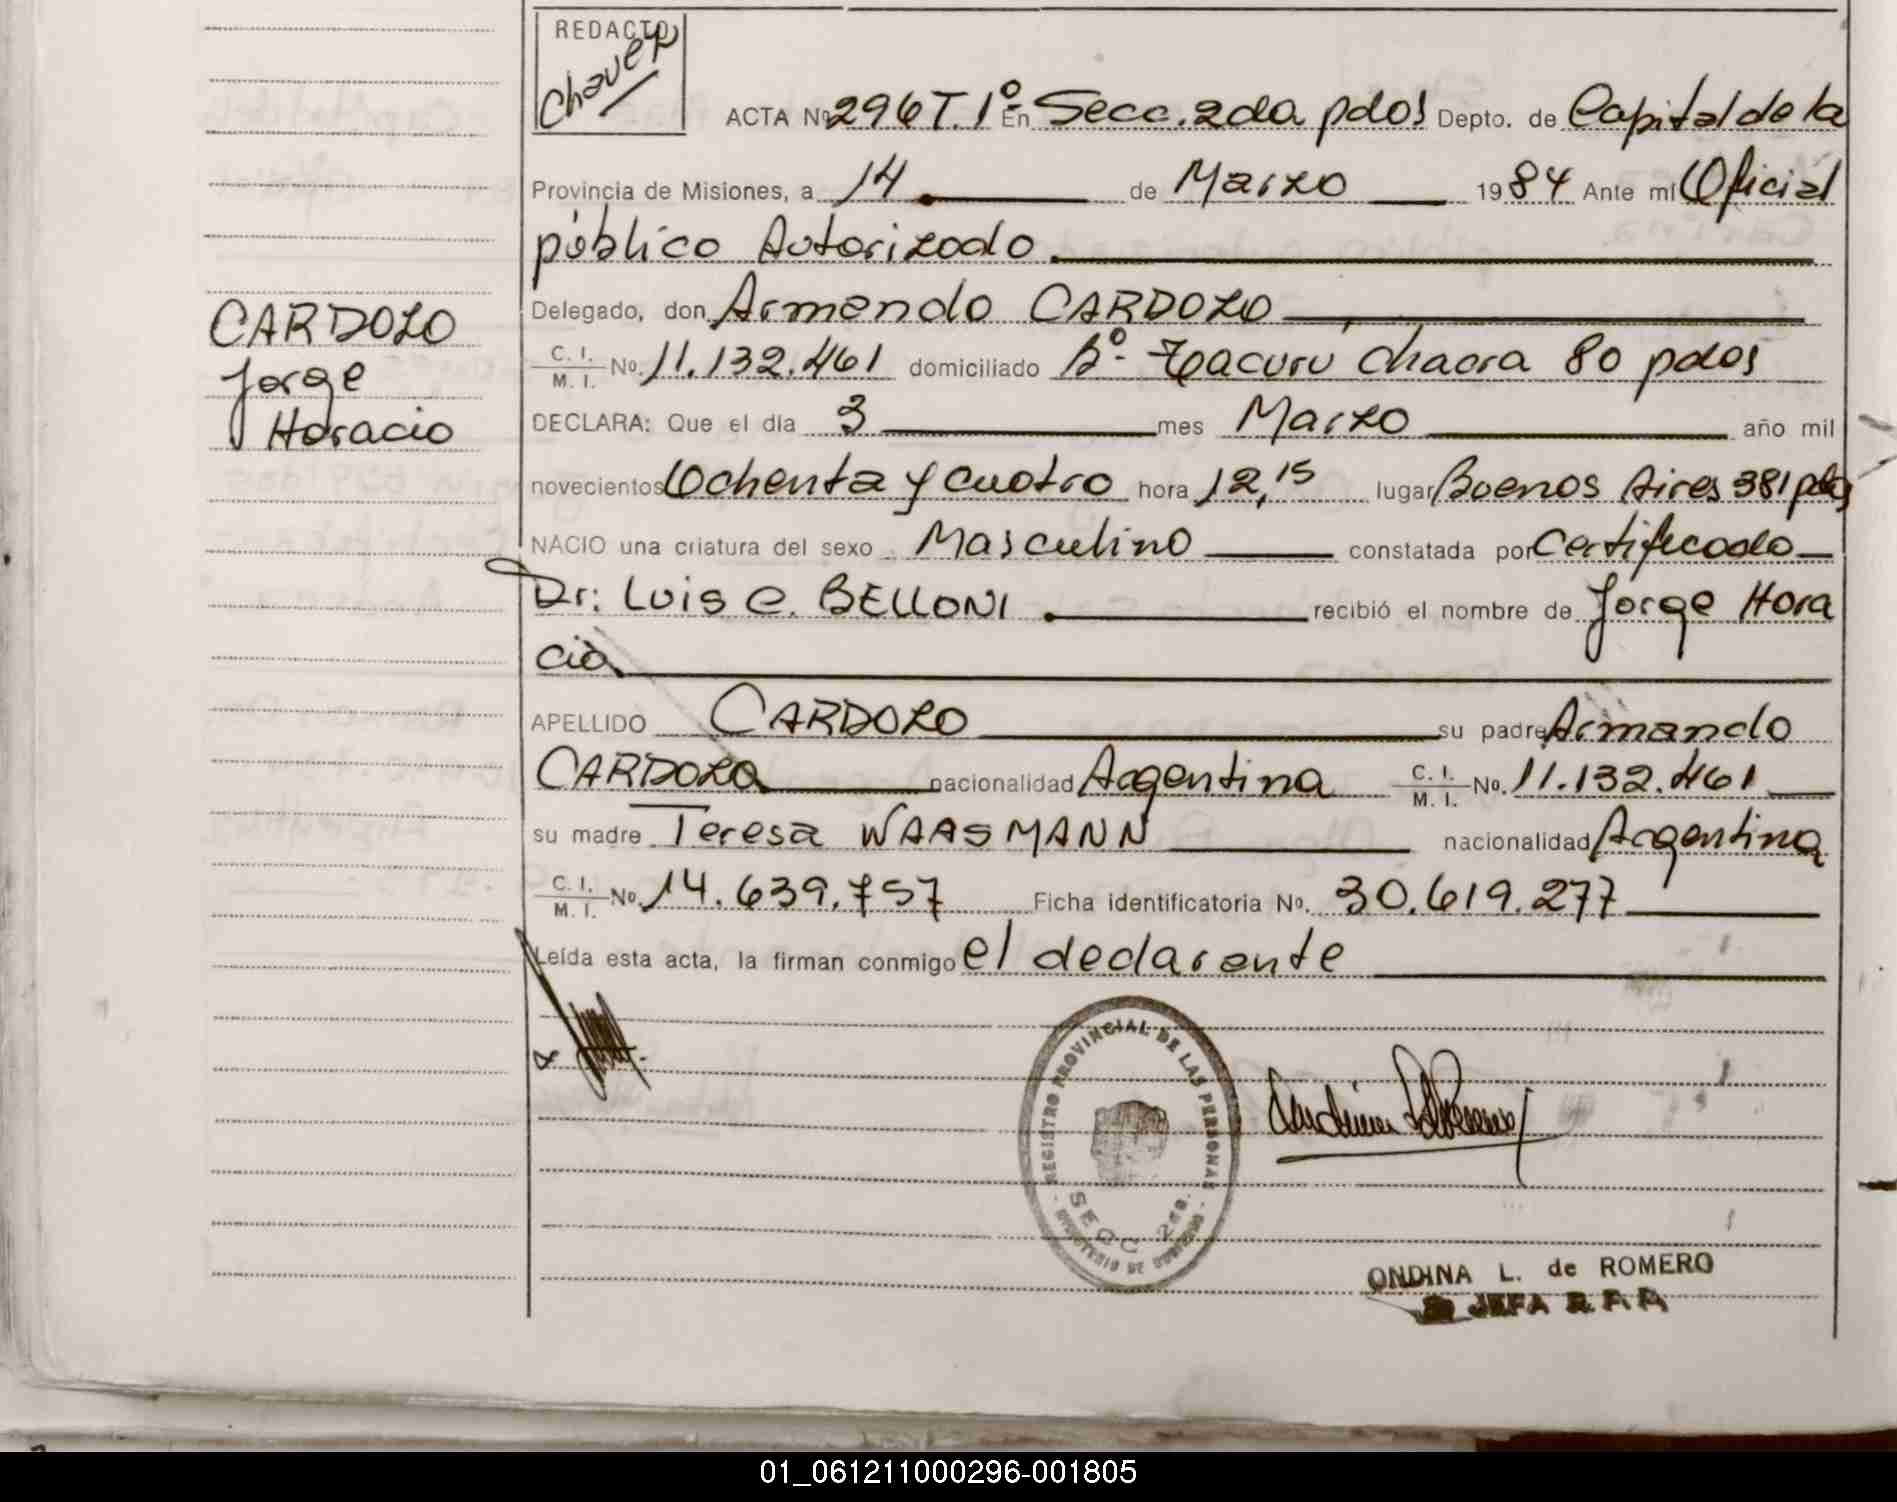 REDACTO
Chavez
ACTA Nº 296 T. 1º En Secc. 2da pdas Depto. de Capital de la
Provincia de Misiones, a 14 de Marzo 1984 Ante mí Oficial
público Autorizado
Delegado, don Armando CARDOZO
C. I. M. I. No. 11.132.461 domiciliado Bº. Tacurú Chacra 80 pdas
DECLARA: Que el día 3 mes Marzo año mil
novecientos Ochenta y cuatro hora 12,15 lugar Buenos Aires 381 pdas
NACIO una criatura del sexo Masculino constatada por Certificado
Dr: LUIS C. BELLONI recibió el nombre de Jorge Hora
cio
APELLIDO CARDOZO su padre Armando
CARDOZO nacionalidad Argentina C. I. M. I. No. 11.132.461
su madre Teresa WAASMANN nacionalidad Argentina
C. I. M. I. No. 14.639.757 Ficha identificatoria No. 30.619.277
Leída esta acta, la firman conmigo el declarante
CARDOZO
Jorge
Horacio
REGISTRO PROVINCIAL DE LAS PERSONAS
SECC 2da.
ONDINA L. de ROMERO
JEFA R.P.P.
01_061211000296-001805